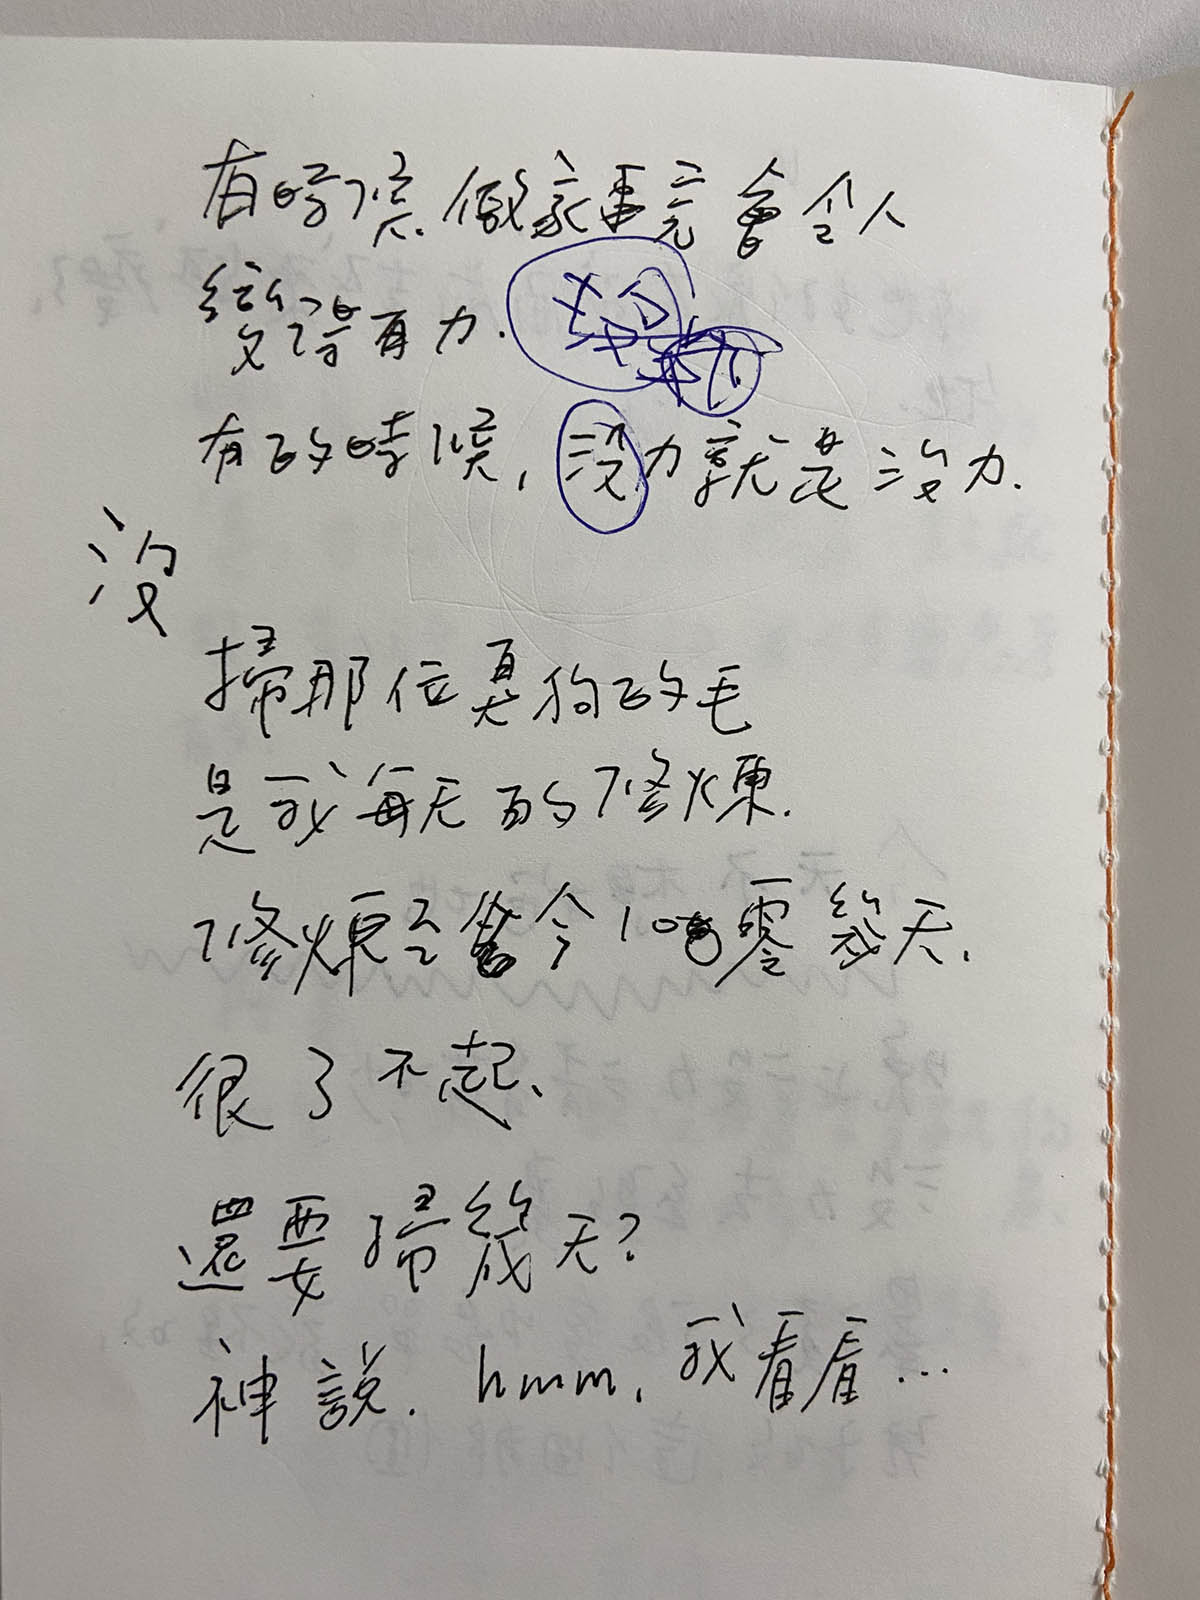 有時候，做家事完會令人
變得有力．
有的時候，沒力就是沒力．
沒
掃那位真狗的毛
是我每天的修煉．
修煉至今10 零幾天，
很了不起、
還要掃幾天？
神說．hmm，我看看...